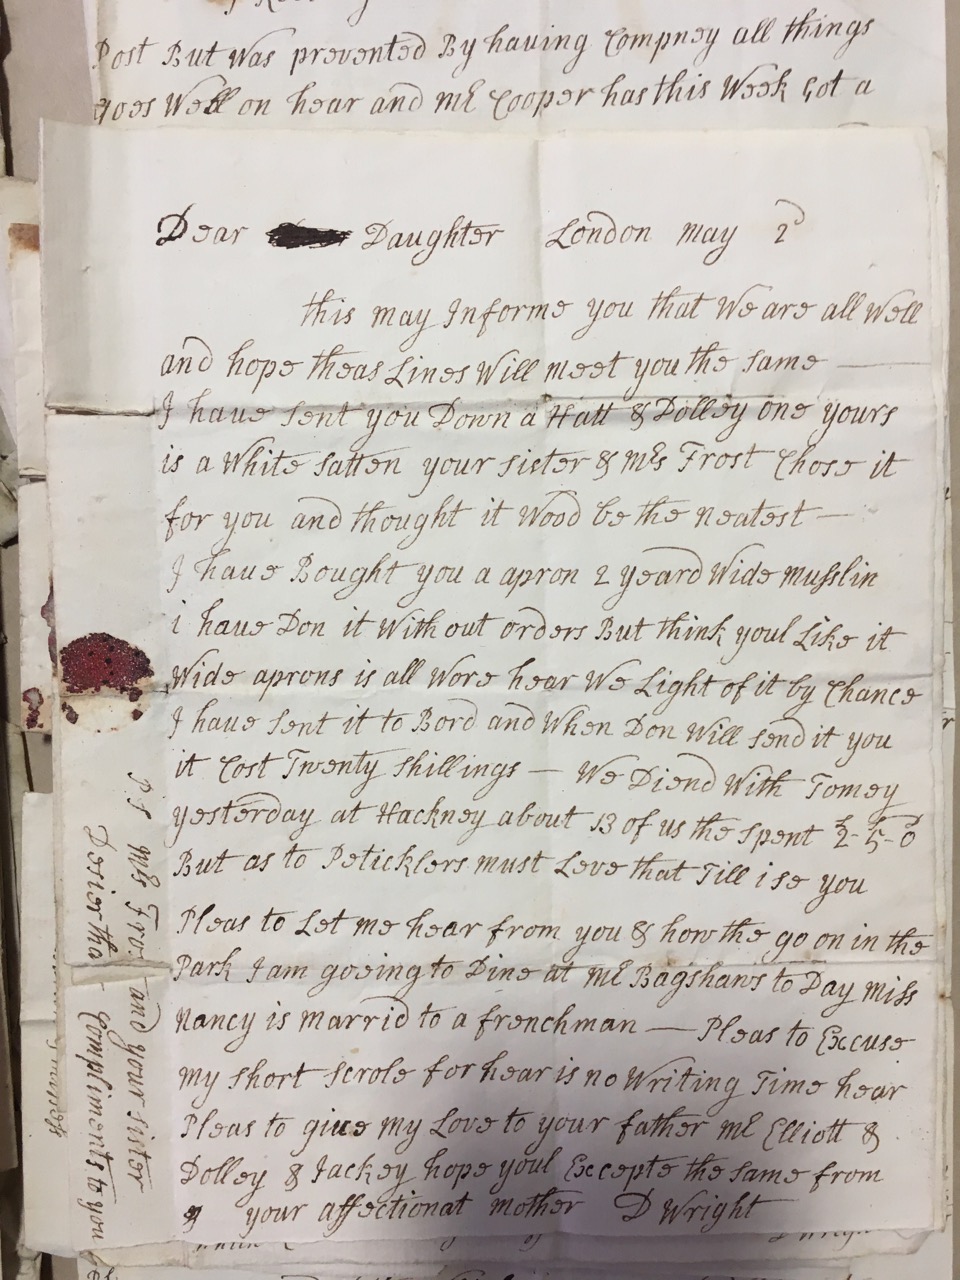 Post But Was prevented By having Compney all things
goes Well on hear and Mr Cooper has this Week Got a
Dear Daughter London May 2d
this may Informe you that We are all Well
and hope theas Lines Will meet you the same —
I have sent you Down a Hatt & Dolley one yours
is a White Satten your sister & Mrs Frost Chose it
for you and thought it Wood be the neatest —
I have Bought you a apron 2 yeard Wide Musslin
i have Don it With out orders But think youl Like it
Wide aprons is all Wore hear We Light of it by Chance
I have sent it to Bord and When Don Will send it you
it Cost Twenty shillings — We Diend With Tomey
yesterday at Hackney about 13 of us the spent 2-5-0
But as to Peticklers must Leve that Till i se you
Pleas to Let me hear from you & how the go on in the
Park I am goeing to Dine at Mr Bagshaws to Day miss
Nancy is marrid to a frenchman — Pleas to Excuse
my short scrole for hear is no Writing Time hear
Pleas to give my Love to your father Mr Elliott &
Dolley & Jackey hope youl Excepte the same from
your affectionat mother D Wright
PS Mrs Fros and your sister
Desier tha Compliments to you